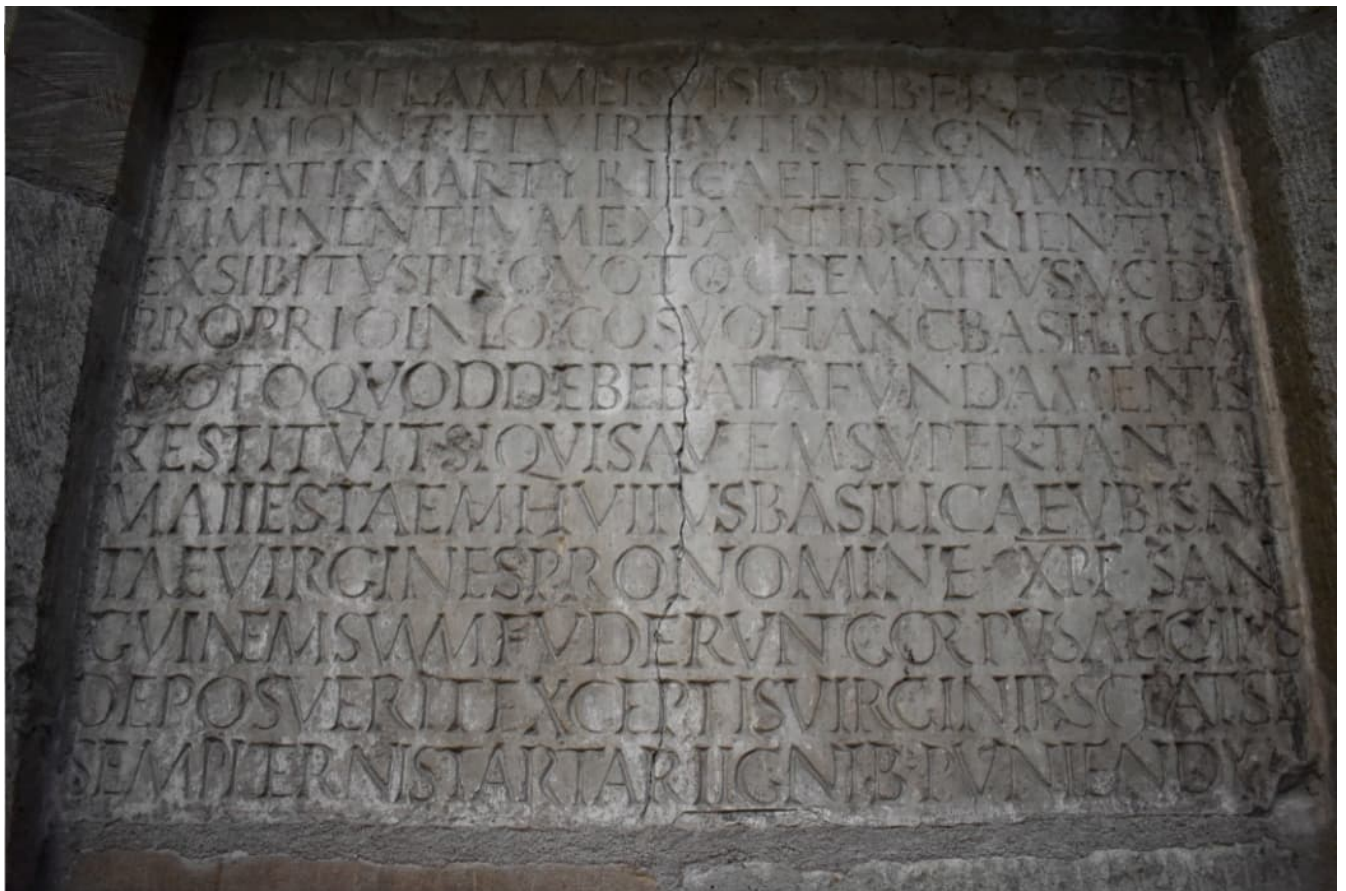 DIVINIS FLAMMEIS VISIONIB·FREQVENTER
ADMONIT·ET VIRTVTIS MAGNAE MAI
IESTATIS MARTYRII CAELESTIVM VIRGIN
IMMINENTIVM EX PARTIB·ORIENTIS
EXSIBITVS PRO VOTO CLEMATIVS V·C·DE
PROPRIO IN LOCO SVO HANC BASILICAM
VOTO QVOD DEBEBAT A FVNDAMENTIS
RESTITVIT·SI QVIS AVTEM SVPER TANTAM
MAIIESTAEM HVIIVS BASILICAE VBI SANC
TAE VIRGINES PRO NOMINE·XPI·SAN
GVINEM SVVM FVDERVNT CORPVS ALICVIIVS
DEPOSVERIT EXCEPTIS VIRGINIB·SCIAT SE
SEMPITERNIS TARTARI IGNIB·PVNIENDVM